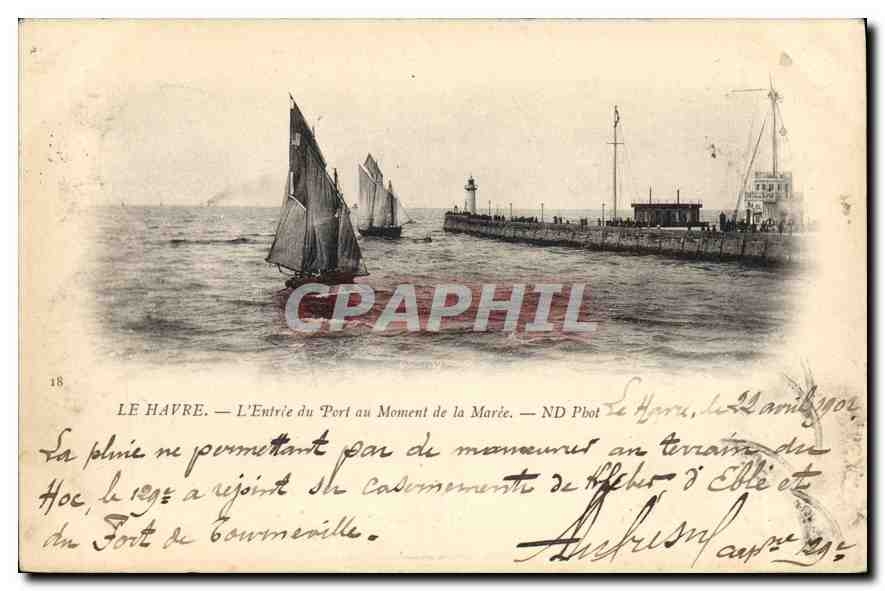 CPAPHIL
18
LE HAVRE. — L'Entrée du Port au Moment de la Marée. — ND Phot
Le Havre, le 22 avril 1902
La pluie ne permettant pas de manœuvrer au terrain du
Hoc, le 129e a rejoint ses casernements de Kléber, d'Eblé et
du Fort de Tourneville.
129e